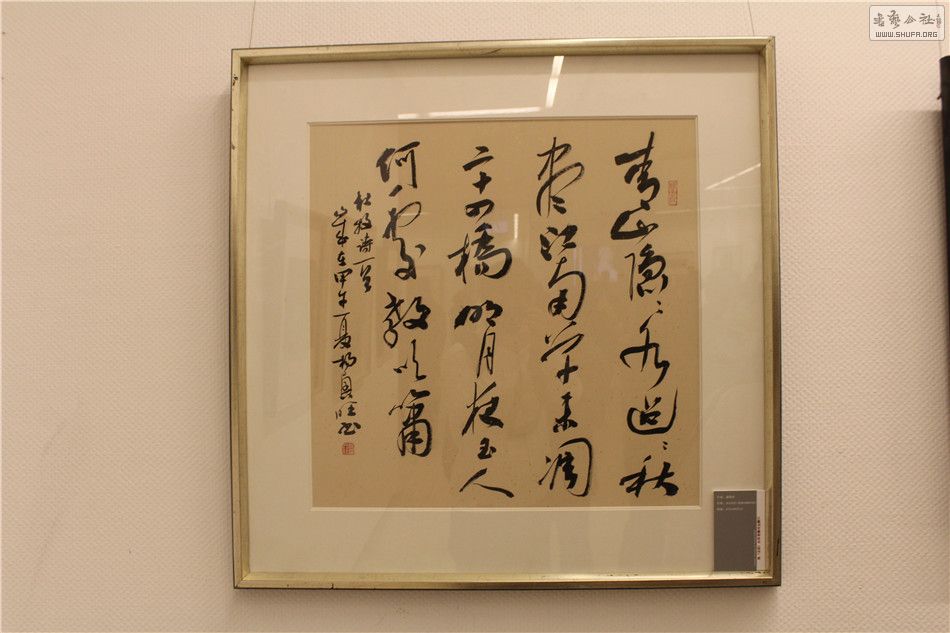 青山隐ゝ水迢ゝ秋
尽江南草未凋
二十四桥明月夜玉人
何处教吹箫
杜牧诗一首
岁在甲午夏杨
书艺公社
WWW.SHUFA.ORG